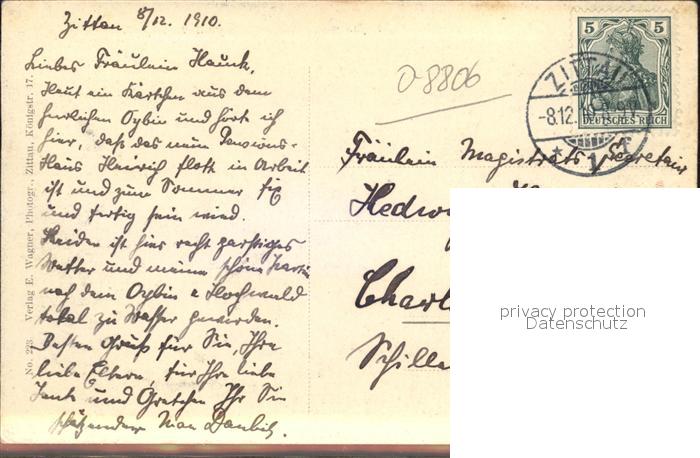 Zittau 8/12. 1910.
Liebes Fräulein Hauck,
Heut ein Kärtchen aus dem
herrlichen Oybin und hört ich
hier, daß das neue Pensions-
Haus Heinrich flott in Arbeit
ist und zum Sommer fix
und fertig sein wird.
Leider ist hier recht garstiges
Wetter und meine schöne Partie
nach dem Oybin & Hochwald
total zu Wasser geworden.
Besten Gruß für Sie, Ihre
liebe Eltern, für Ihre liebe
Tante und Gretchen Ihr Sie
schätzender Max
No. 223. Verlag E. Wagner, Photogr., Zittau, Königstr. 17.
0-8806
5 5
DEUTSCHES REICH
ZITTAU
-8.12.
* 1
Fräulein Magistrats Secretair
Hedw
Charl
Schille
privacy protection
Datenschutz